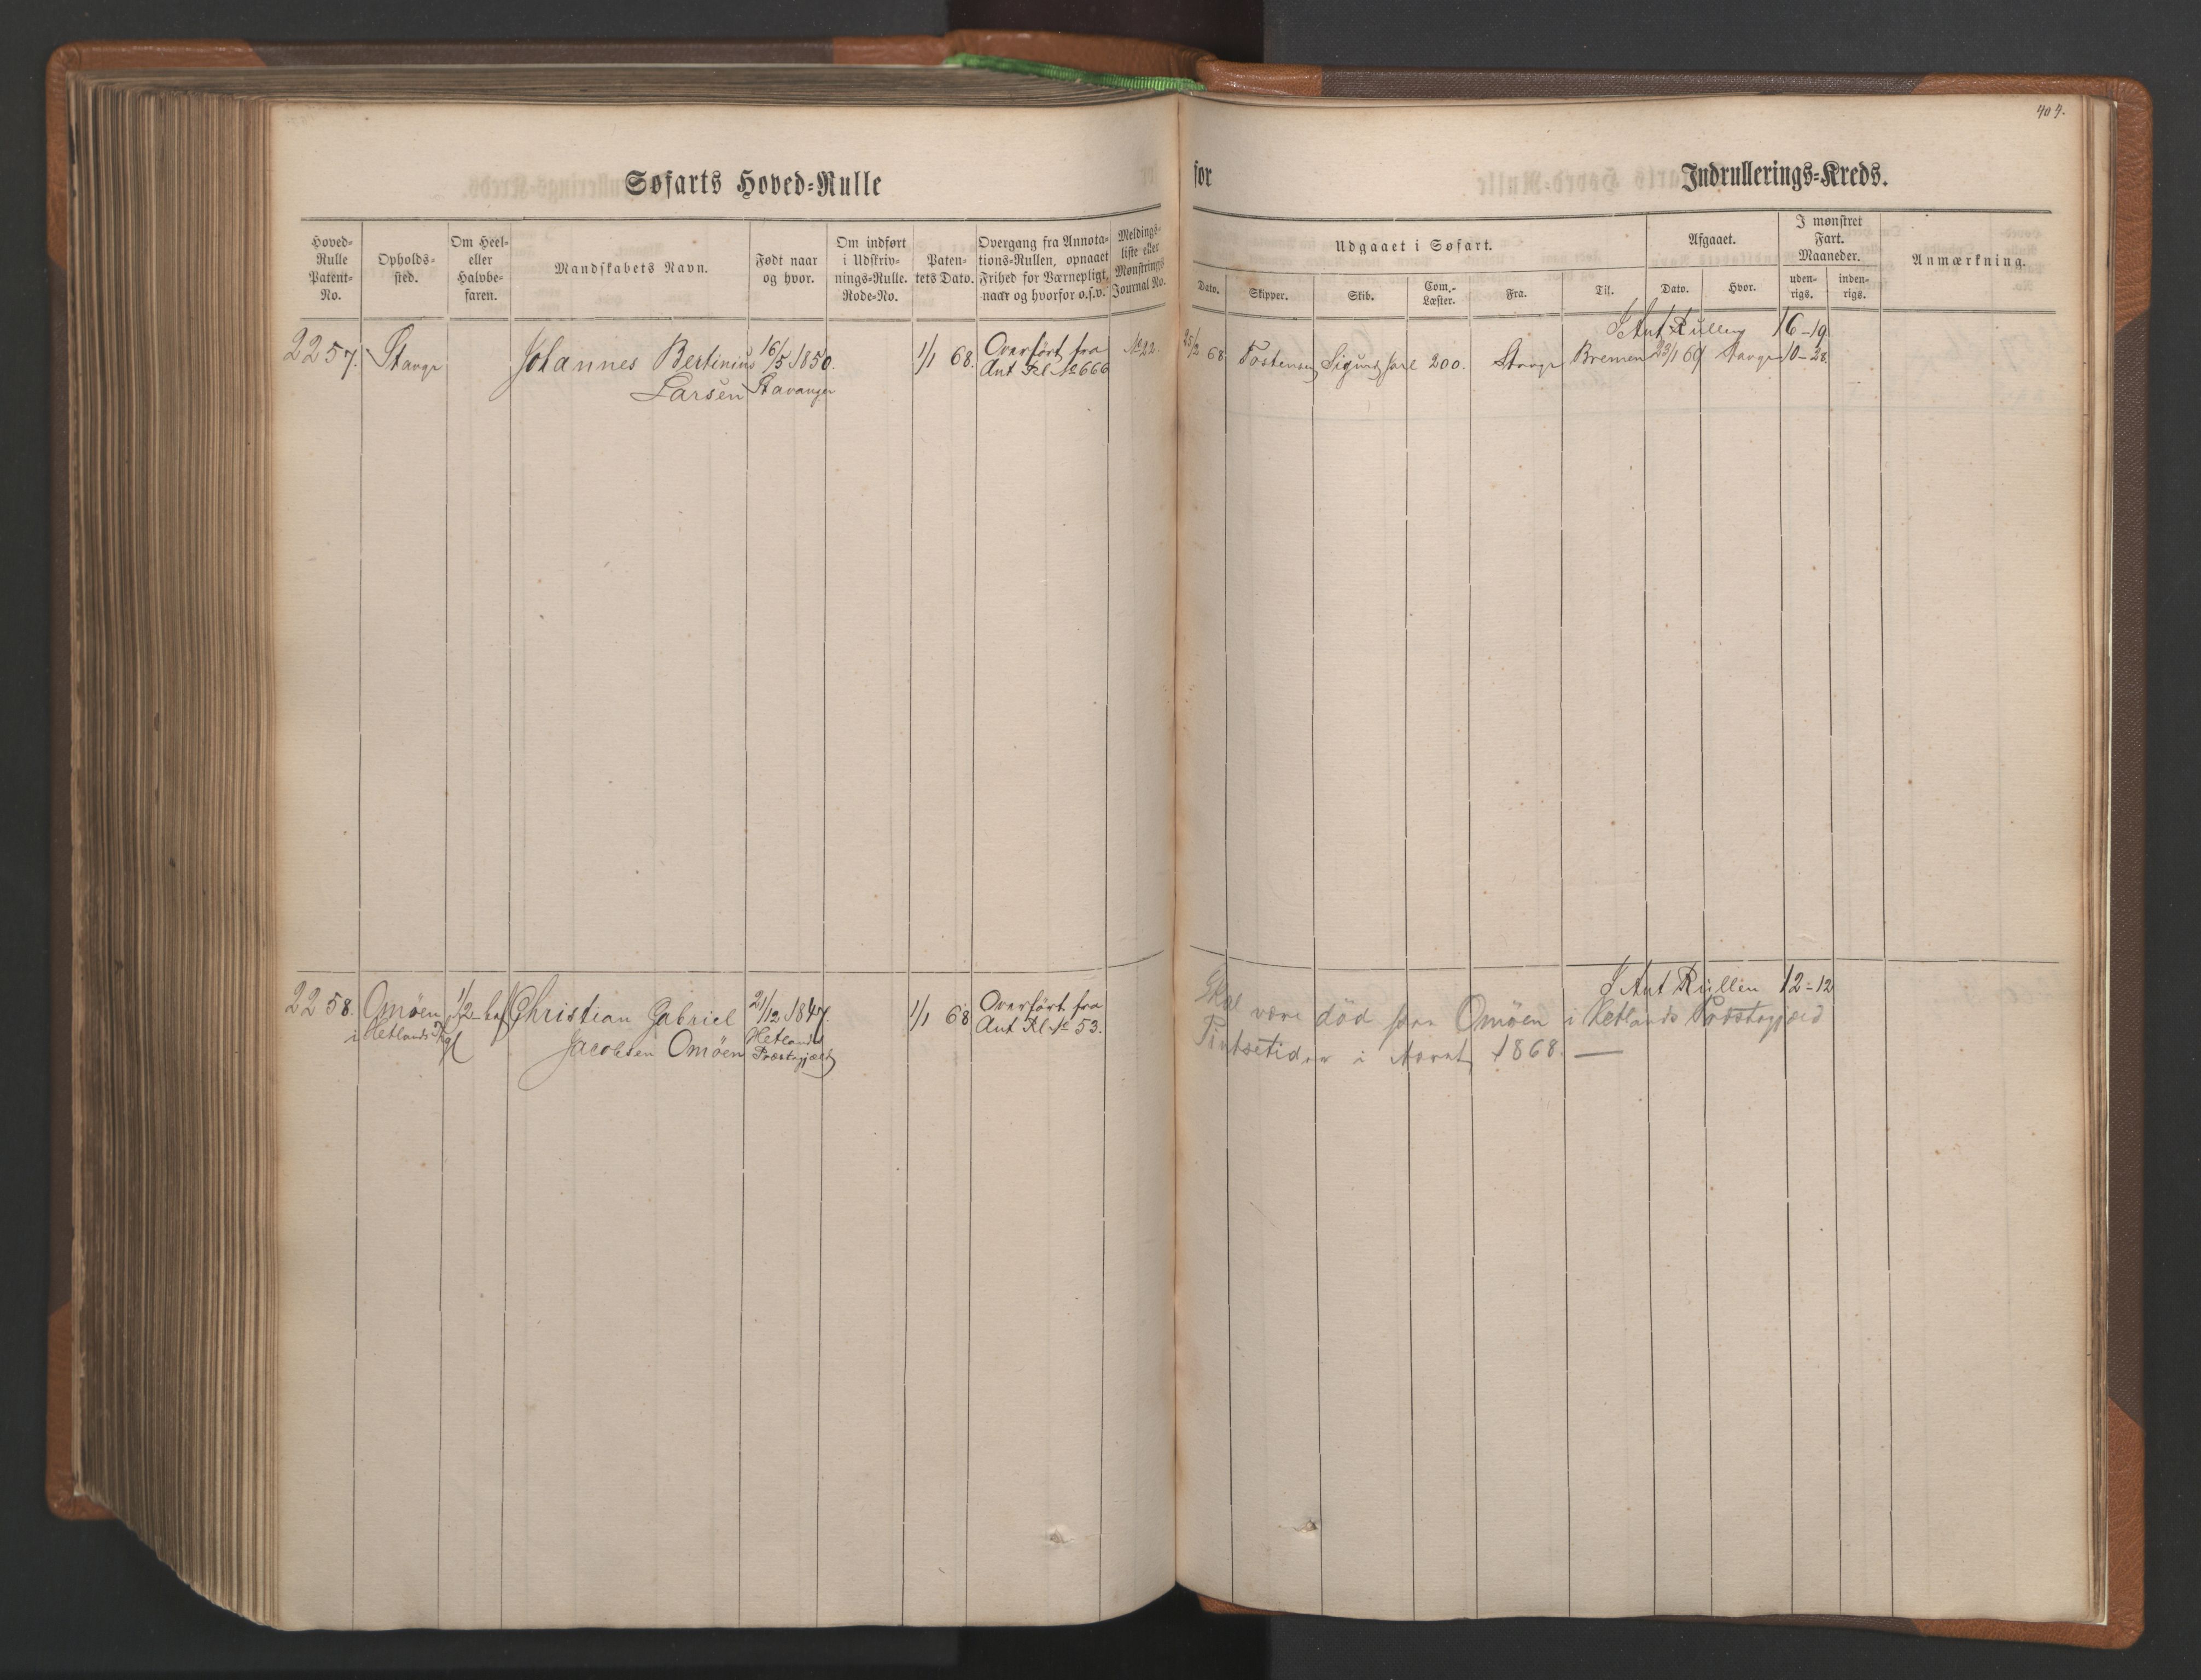 404.
Søfarts Hoved-Rulle
for
Indrullerings-Kreds.
Hoved-
Rulle
Patent-
No.
Opholds-
sted.
Om Heel-
eller
Halvbe-
faren.
Mandskabets Navn.
Født naar
og hvor.
Om indført
i Udskriv-
nings-Rulle.
Rode-No.
Paten-
tets Dato.
Overgang fra Annota-
tions-Rullen, opnaaet
Frihed for Værnepligt,
naar og hvorfor o.s.v.
Meldings-
liste eller
Mønstrings
Journal No.
Udgaaet i Søfart.
Dato.
Skipper.
Skib.
Com.-
Læster.
Fra.
Til.
Afgaaet.
Dato.
Hvor.
I mønstret
Fart.
Maaneder.
uden-
rigs.
inden-
rigs.
Anmærkning.
I Ant Rullen 16-19
2257. Stavgr Johannes Bertinius 16/5 1850. 1/1 68. Overført fra No 22. 25/2 68 Tostensen Sigurd Jarl 200. Stavgr Bremen 23/1 69 Stavgr 10-28
Larsen Stavanger Ant Rl No 666
I Ant Rullen 12-12
2258. Omøen 1/2 bef Christian Gabriel 21/12 1847. 1/1 68 Overført fra
i Hetlands Pgl Jacobsen Omøen Hetlands Præstegjæld Ant Rl No 53.
Skal være død paa Omøen i Hetlands Præstegjæld
Pintsetiden i Aaret 1868. —